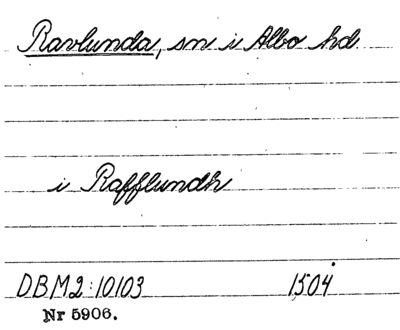 Ravlunda, sn i Albo hd
i Rafflundh
DBM2:10103 1504
Nr 5906.